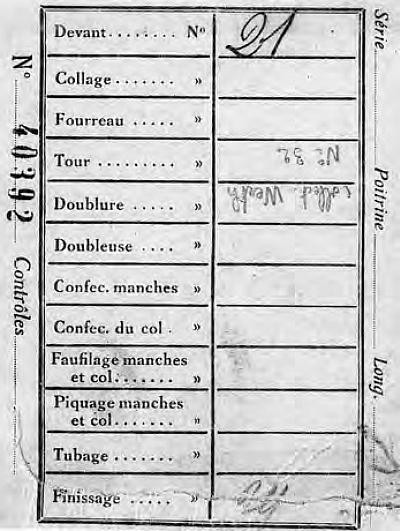 Devant........ Nº 21
Collage....... »
Fourreau ..... »
Tour ......... » Nº 32
Doublure ..... » Collect. Werth
Doubleuse .... »
Confec. manches »
Confec. du col . »
Faufilage manches
et col....... »
Piquage manches
et col....... »
Tubage ....... »
Finissage ..... »
Nº 40392 Contrôles
Série Poitrine Long.